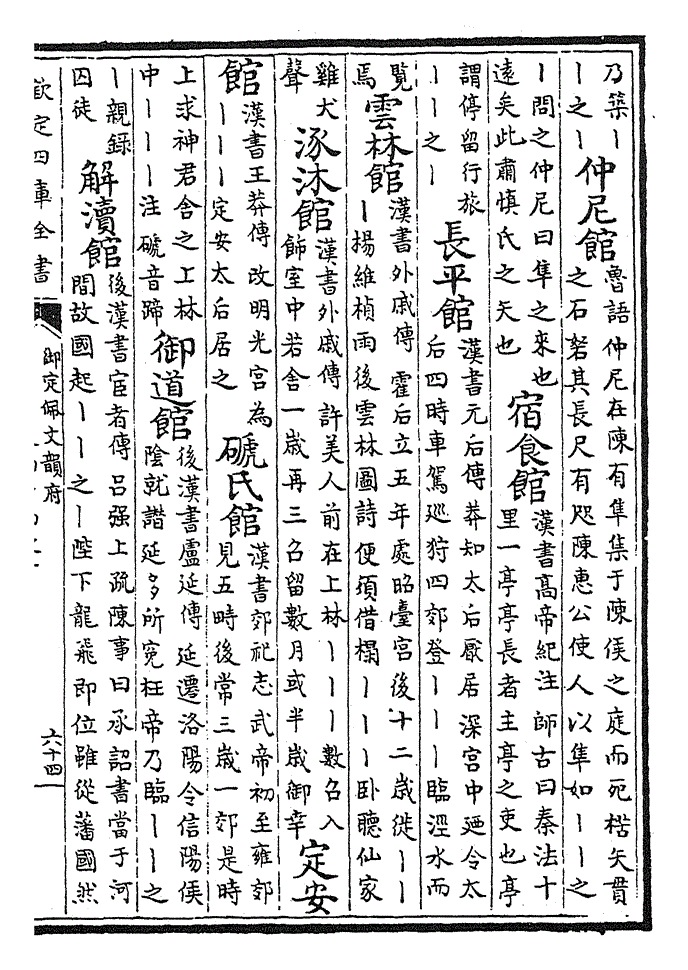 乃築〡
〡之〡
仲尼館
魯語仲尼在陳有隼集于陳侯之庭而死楛矢貫
之石砮其長尺有咫陳惠公使人以隼如〡〡之
〡問之仲尼曰隼之來也
遠矣此肅慎氏之矢也
宿食館
漢書高帝紀注師古曰秦法十
里一亭亭長者主亭之吏也亭
謂停留行旅
〡〡之〡
長平館
漢書元后傳莽知太后厭居深宫中廼令太
后四時車駕巡狩四郊登〡〡〡臨涇水而
覽
焉
雲林館
漢書外戚傳霍后立五年處昭臺宫後十二歲徙〡〡
〡揚維楨雨後雲林圖詩便須借榻〡〡〡卧聽仙家
雞犬
聲
涿沐館
漢書外戚傳許美人前在上林〡〡〡數召入
飾室中若舍一歲再三召留數月或半歲御幸
定安
館
漢書王莽傳改明光宫為
〡〡〡定安太后居之
磃氏館
漢書郊祀志武帝初至雍郊
見五畤後常三歲一郊是時
上求神君舍之上林
中〡〡〡注磃音蹄
御道館
後漢書盧延傳延遷洛陽令信陽侯
陰就譖延多所寃枉帝乃臨〡〡之
〡親録
囚徒
解瀆館
後漢書宦者傳吕强上疏陳事曰承詔書當于河
間故國起〡〡之〡陛下龍飛即位雖從藩國然
欽定四庫全書
御定佩文韻府
六十四